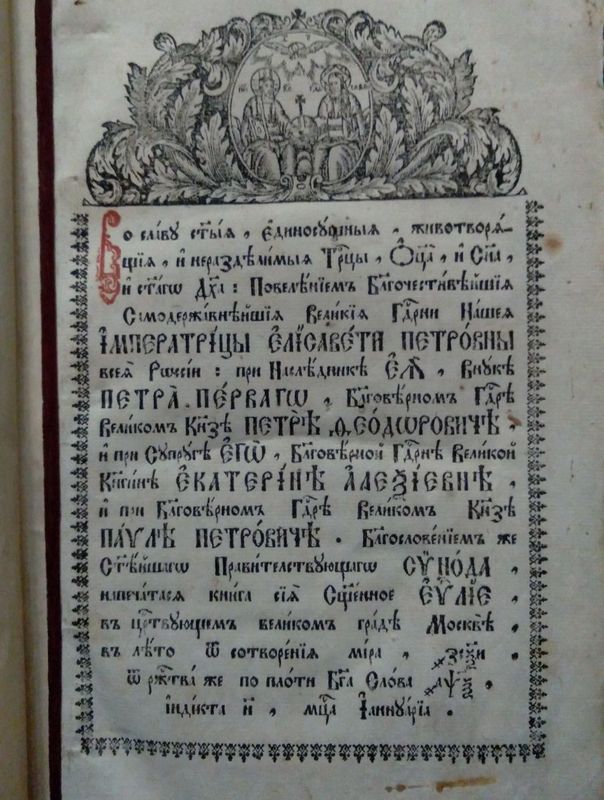 Во славу ст҃ыѧ, єдиносꙋщныѧ, животворѧ-
щїѧ, и нераздѣлимыѧ Трⷪ҇цы, Ѻц҃а, и Сн҃а,
и ст҃агѡ Дх҃а: Повелѣнїемъ Благочестивѣйшїѧ
Самодержавнѣйшїѧ Великїѧ Гдⷭ҇рни Нашеѧ
ІМПЕРАТРІЦЫ ЕЛІСАВЕТИ ПЕТРОВНЫ
всеѧ Рѡссїи: при Наслѣдникѣ ЕЯ, Внꙋкѣ
ПЕТРА ПЕРВАГѠ, Бл҃говѣрномъ Гдⷭ҇рѣ
Великомъ Кнѧзѣ ПЕТРѢ ѲЕОДѠРОВИЧѢ,
и при Сꙋпрꙋгѣ ЕГѠ, Бл҃говѣрной Гдⷭ҇рнѣ Великой
Кнѧгинѣ ЕКАТЕРІНѢ АЛЕѮІЕВНѢ,
и при Бл҃говѣрномъ Гдⷭ҇рѣ Великомъ Кнѧзѣ
ПАѴЛѢ ПЕТРОВИЧѢ. Бл҃гословенїемъ же
Ст҃ѣйшагѡ Правителствꙋющагѡ СѴНОДА,
напечатасѧ книга сїѧ Сщ҃енное ЕѴⷢ҇ЛІЕ
въ црⷭ҇твꙋющемъ великомъ градѣ Москвѣ,
въ лѣто ѿ сотворенїѧ мїра,
ѿ ржⷭ҇тва же по плоти Бг҃а Слова
їндїкта и҃, мцⷭ҇а Іаннꙋарїа.